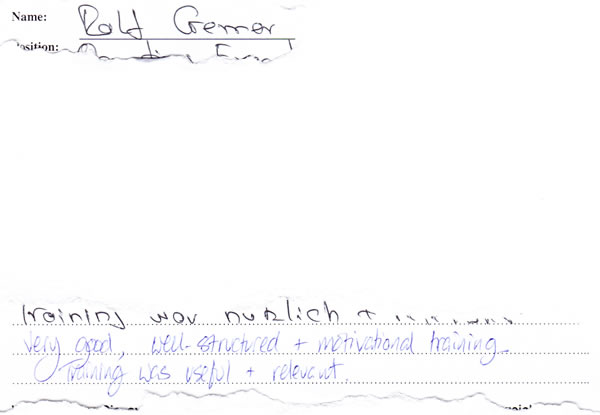 Name: Rolf Gerner
Position:
training war nützlich +
Very good, well-structured + motivational training.
Training was useful + relevant.